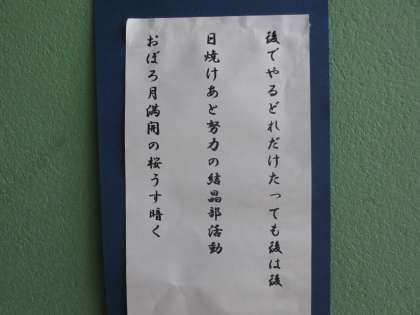 後でやるどれだけたっても後は後
日焼けあと努力の結晶部活動
おぼろ月満開の桜うす暗く